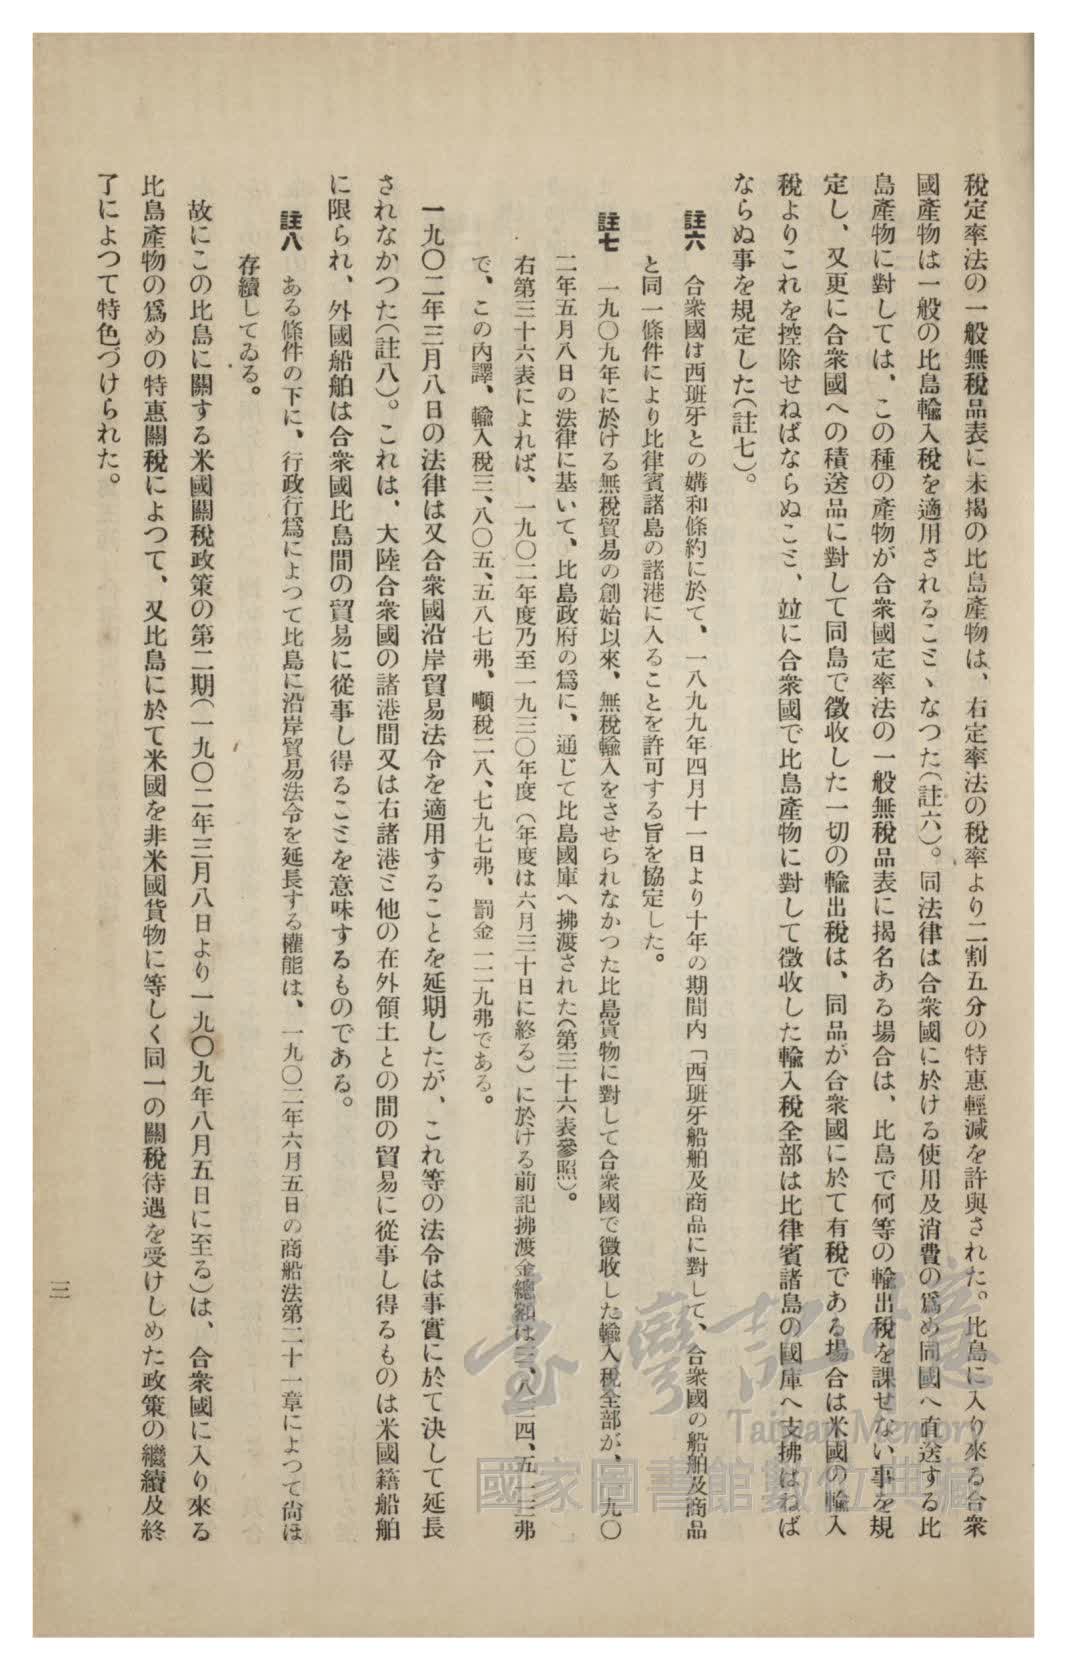 稅定率法の一般無稅品表に未揭の比島產物は、右定率法の稅率より二割五分の特惠輕減を許與された。比島に入り來る合衆
國產物は一般の比島輸入稅を適用されるこミヽなつた（註六）。同法律は合衆國に於ける使用及消費の爲め同國へ直送する比
島產物に對しては、この種の產物が合衆國定率法の一般無稅品表に揭名ある場合は、比島で何等の輸出稅を課せない事を規
定し、又更に合衆國への積送品に對して同島で徵收した一切の輸出稅は、同品が合衆國に於て有稅である場合は米國の輸入
稅よりこれを控除せねばならぬこミ、竝に合衆國で比島產物に對して徵收した輸入稅全部は比律賓諸島の國庫へ支拂はねば
ならぬ事を規定した（註七）。
註六　合衆國は西班牙との媾和條約に於て、一八九九年四月十一日より十年の期間內「西班牙船舶及商品に對して、合衆國の船舶及商品
と同一條件により比律賓諸島の諸港に入ることを許可する旨を協定した。
註七　一九〇九年に於ける無稅貿易の創始以來、無稅輸入をさせられなかつた比島貨物に對して合衆國で徵收した輸入稅全部が、一九〇
二年五月八日の法律に基いて、比島政府の爲に、通じて比島國庫へ拂渡された（第三十六表參照）。
右第三十六表によれば、一九〇二年度乃至一九三〇年度（年度は六月三十日に終る）に於ける前記拂渡金總額は三、八三四、五一三弗
で、この內譯、輸入稅三、八〇五、五八七弗、噸稅二八、七九七弗、罰金一二九弗である。
一九〇二年三月八日の法律は又合衆國沿岸貿易法令を適用することを延期したが、これ等の法令は事實に於て決して延長
されなかつた（註八）。これは、大陸合衆國の諸港間又は右諸港ミ他の在外領土との間の貿易に從事し得るものは米國籍船舶
に限られ、外國船舶は合衆國比島間の貿易に從事し得るこミを意味するものである。
註八　ある條件の下に、行政行爲によつて比島に沿岸貿易法令を延長する權能は、一九〇二年六月五日の商船法第二十一章によつて尙ほ
存續してゐる。
故にこの比島に關する米國關稅政策の第二期（一九〇二年三月八日より一九〇九年八月五日に至る）は、合衆國に入り來る
比島產物の爲めの特惠關稅によつて、又比島に於て米國を非米國貨物に等しく同一の關稅待遇を受けしめた政策の繼續及終
了によつて特色づけられた。
三
臺灣記憶
Taiwan Memory
國家圖書館數位典藏